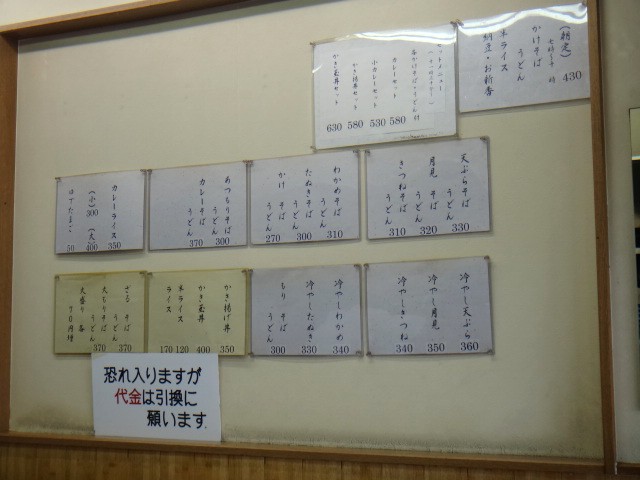 (朝定)
かけそば
うどん
半ライス
納豆・お新香
430
セットメニュー
カレーセット 580
小カレーセット 530
かき揚丼セット 580
かき玉丼セット 630
天ぷらそば うどん 330
月見 そば うどん 320
きつねそば うどん 310
わかめそば うどん 310
たぬきそば うどん 300
かけ そば うどん 270
あつもりそば うどん 300
カレーそば うどん 370
カレーライス 350
(小) 300 (大) 400
ゆでたまご 50
冷やし天ぷら 360
冷やし月見 350
冷やしきつね 340
冷やしわかめ 340
冷やしたぬき 330
もり そば うどん 300
かき揚げ丼 350
かき玉丼 400
半ライス 120
ライス 170
ざる そば うどん 370
大もりそば うどん 370
大盛り 各70円増
恐れ入りますが
代金は引換に
願います.